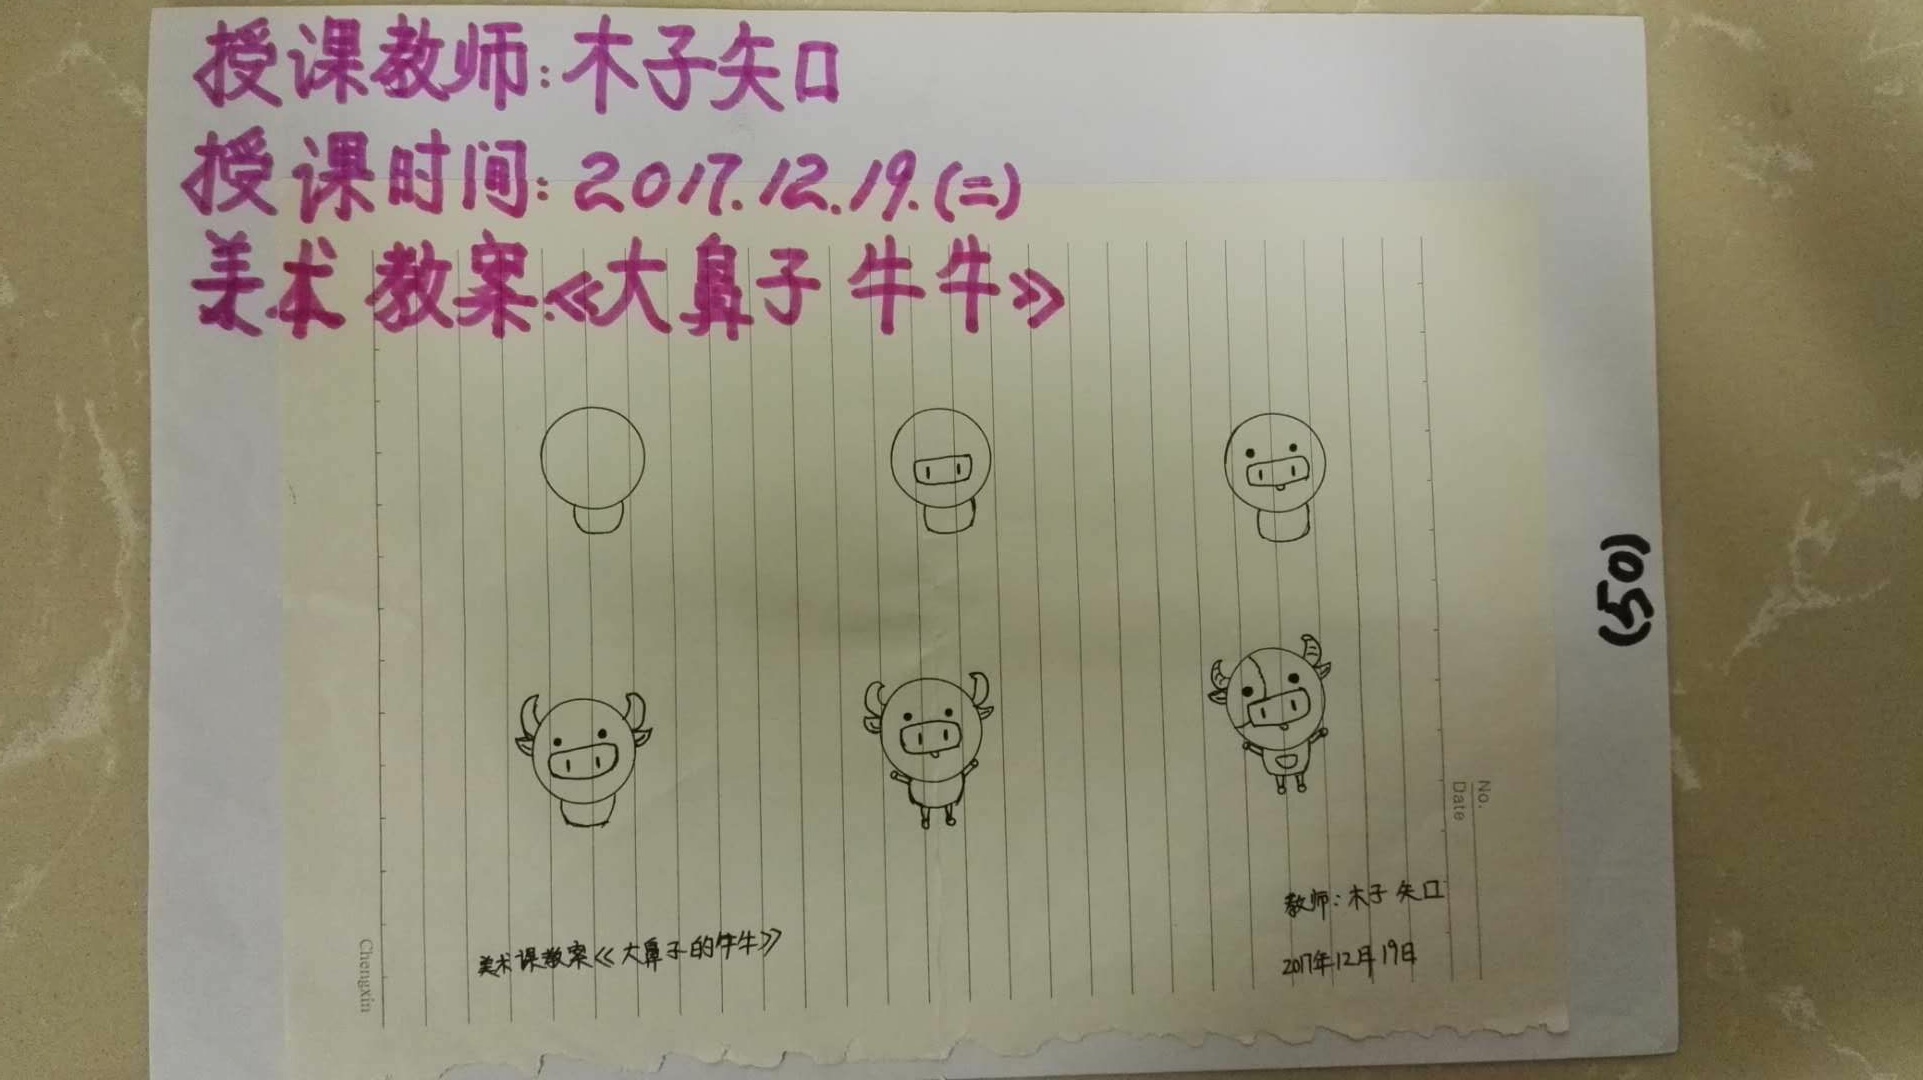 授课教师:木子矢口
授课时间:2017.12.19.(二)
美术教案《大鼻子牛牛》
(50)
No.
Date
教师:木子矢口
2017年12月19日
美术课教案《大鼻子的牛牛》
Chengxin